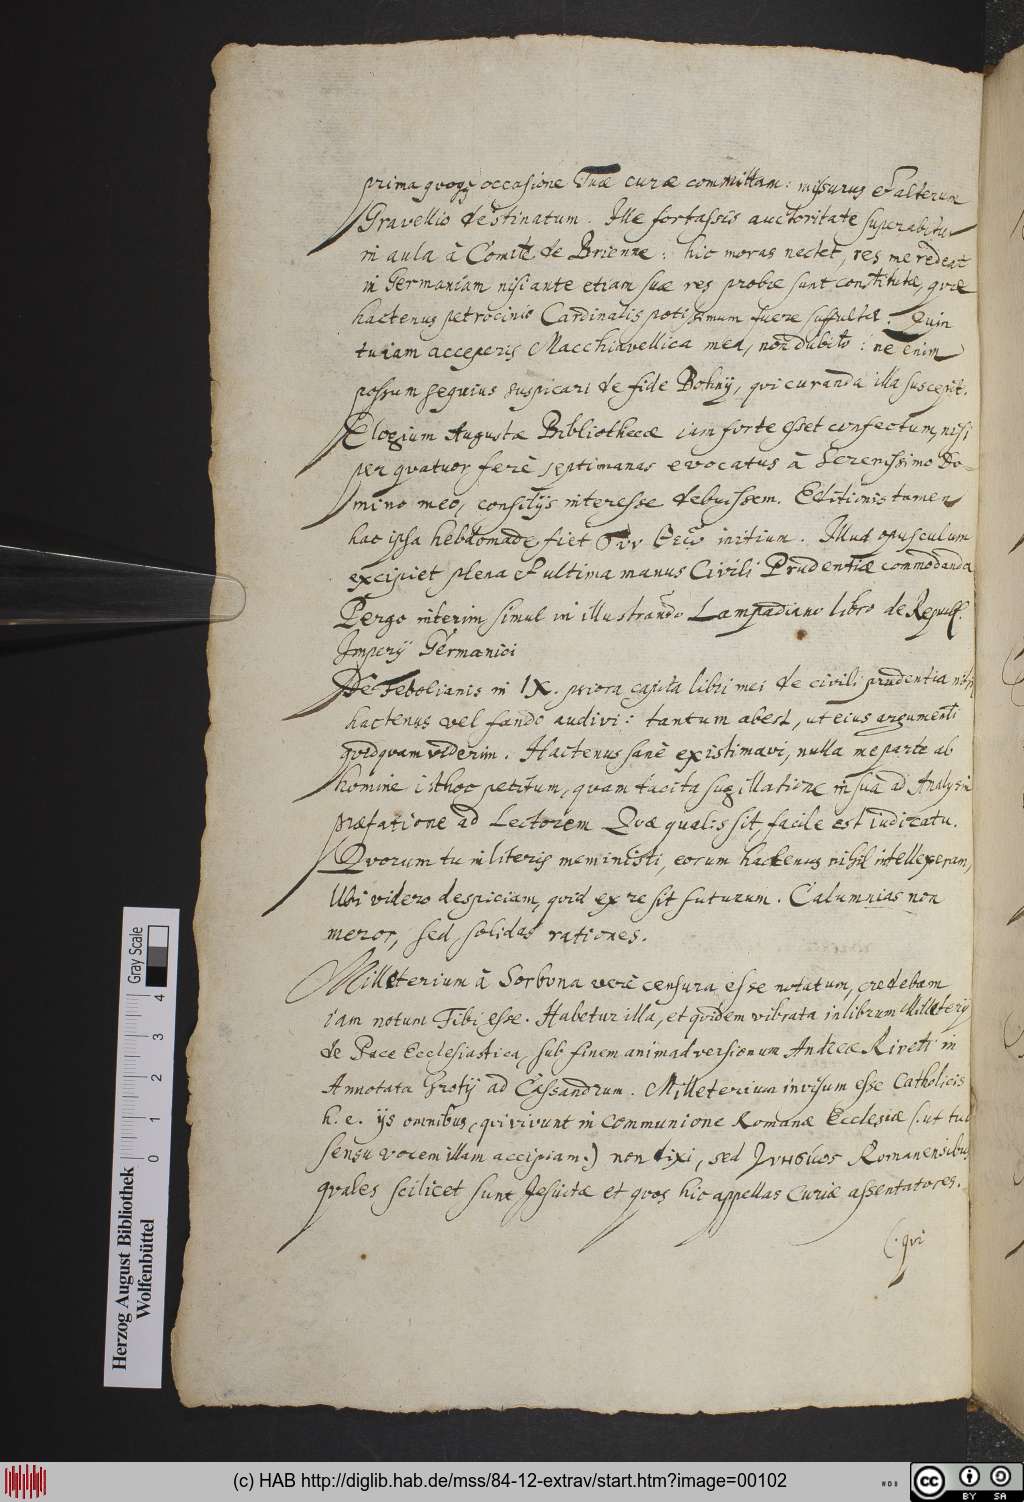 prima quoque occasione Tuae curae committam: missurus et alterum
Gravellio destinatum. Ille fortassis auctoritate superabitur
in aula à Comite de Brienne: hic moras nectet, res me redeat
in Germaniam nisi ante etiam suae res probae sunt constitutae, quae
hactenus petrocinio Cardinalis potissimum fuere suffultae. Quin
tu iam acceperis Macchiavellica mea, non dubito: ne enim
possum sequius suspicari de fide Bohny, qui curanda illa suscepit.
Elogium Augustae Bibliothecae iam forte esset confectum, nisi
per quatuor ferè septimanas evocatus à Serenissimo Do-
mino meo, consilijs interesse debuissem. Editionis tamen
hac ipsa hebdomade fiet initium. Illud opusculum
excipiet plena et ultima manus Civili Prudentiae commodanda
Pergo interim simul in illustrando Lampadiano libro de Republ.
Imperij Germanici
De Tebolianis in IX. priora capita libri mei de civili prudentia nihil
hactenus vel fando audivi: tantum abest, ut eius argumenti
quidquam viderim. Hactenus sanè existimavi, nulla me parte ab
homine isthoc petitum, quam tacita sugillatione in sua ad Analysin
praefatione ad Lectorem Quae qualis sit, facile est iudicatu.
Quorum tu in literis meministi, eorum hactenus nihil intellexeram,
Ubi videro despiciam, quid ex re sit futurum. Calumnias non
meror, sed solidas rationes.
Milleterium à Sorbona verè censura esse notatum, credebam
iam notum Tibi esse. Habetur illa, et quidem vibrata in librum Milleterij
de Pace Ecclesiastica, sub finem animadversionum Andreae Riveti in
Annotata Grotij ad Cassandrum. Milleterium invisum esse Catholicis
h. e. ijs omnibus, qui vivunt in communione Romanae Ecclesiae (: ut tuo
sensu vocem illam accipiam.) non dixi, sed γνησίοις Romanensibus
quales scilicet sunt Jesuitae et quos hic appellas Curiae assentatores.
(: qui
Herzog August Bibliothek
Wolfenbüttel
0 1 2 3 4
Gray Scale
(c) HAB http://diglib.hab.de/mss/84-12-extrav/start.htm?image=00102
WDB
cc BY SA